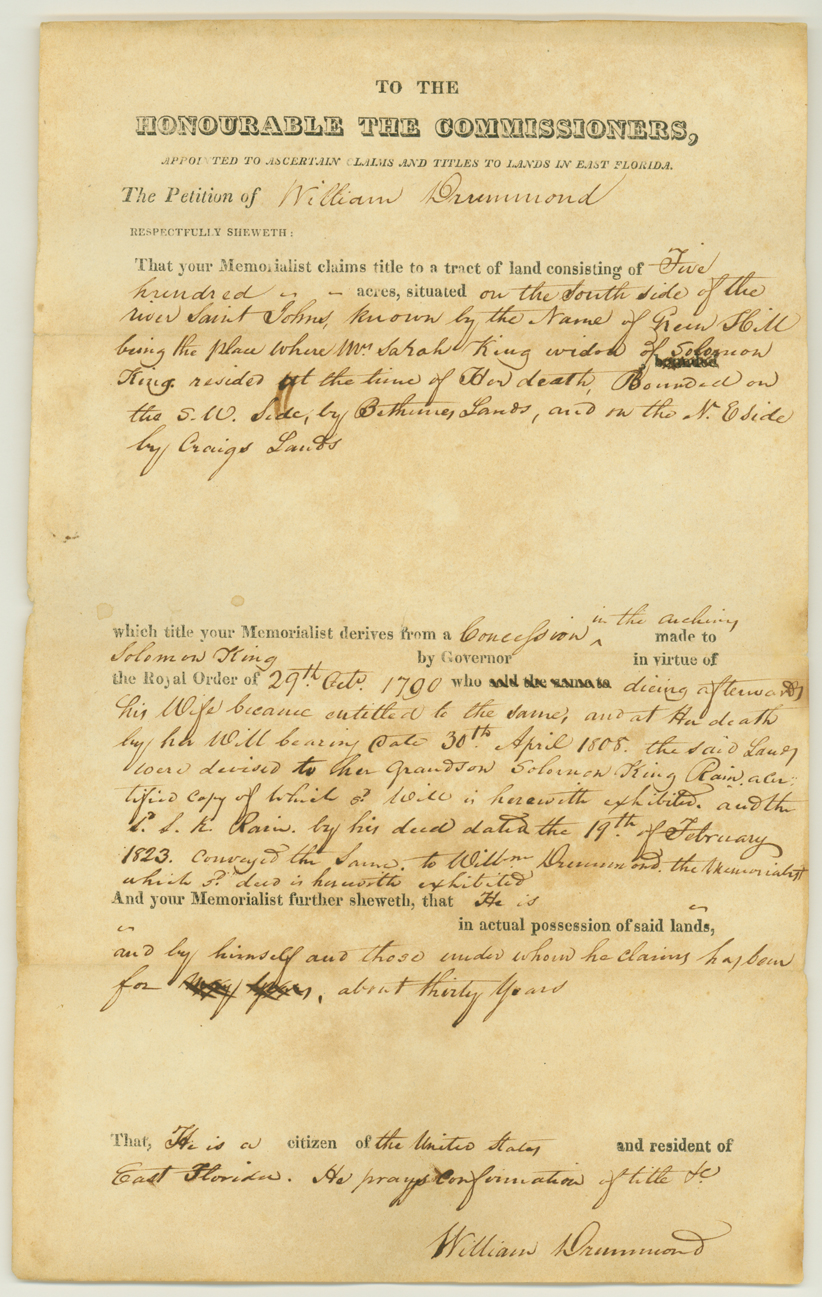 TO THE
HONOURABLE THE COMMISSIONERS,
APPOINTED TO ASCERTAIN CLAIMS AND TITLES TO LANDS IN EAST FLORIDA.
The Petition of William Drummond
RESPECTFULLY SHEWETH:
That your Memorialist claims title to a tract of land consisting of Five
hundred acres, situated on the South side of the
river Saint Johns, known by the Name of Green Hill
being the place where Mrs Sarah King widow of Solomon
King resided at the time of Her death, Bounded on
the S. W. Side, by Bethunes Lands, and on the N. E side
by Craigs Lands
in the archives
which title your Memorialist derives from a Concession ^ made to
Solomon King by Governor in virtue of
the Royal Order of 29th Octr. 1790 who dieing afterwards
his Wife became entitled to the same, and at Her death
by her Will bearing Date 30th April 1808. the said Lands
were devised to her Grandson Solomon King Rain. a cer:
tified copy of which sd. Will is herewith exhibited. and the
sd. S. K. Rain. by his deed dated the 19th of February
1823. conveyed the Same. to Willm Drummond. the Memorialist
which sd. deed is herewith exhibited
And your Memorialist further sheweth, that He is
in actual possession of said lands,
and by himself and those under whom he claims has been
for about thirty Years
That, He is a citizen of the United States and resident of
East Florida. He prays Confirmation of title &c
William Drummond